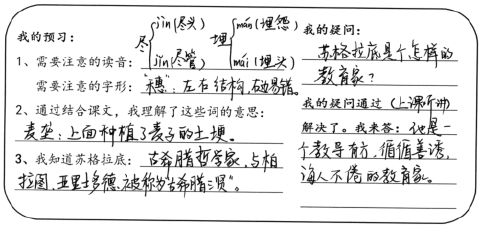 我的预习:
尽 { jìn(尽头) 埋 { mán(埋怨)
1、需要注意的读音: jǐn(尽管) mái(埋头)
需要注意的字形:“穗”:左右结构,右边易错。
2、通过结合课文,我理解了这些词的意思:
麦垄:上面种植了麦子的土埂。
3、我知道苏格拉底:古希腊哲学家,与柏
拉图、亚里士多德,被称为“古希腊三贤”。
我的疑问:
苏格拉底是个怎样的
教育家?
我的疑问通过(上课听讲)
解决了。我来答:他是一
个教导有方,循循善诱,
诲人不倦的教育家。